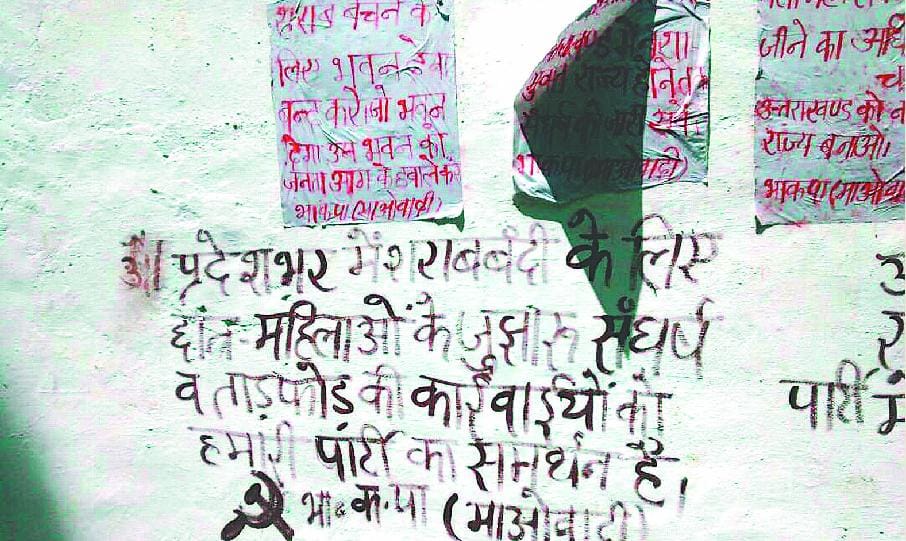 शराब बेचने के
लिए भवन देना
बन्द करो। जो भवन
देगा उस भवन को
जनता आग के हवाले करे
भाकपा (माओवादी)
मुक्त राज्य
भाकपा (माओवादी)
जीने का अधि
उत्तराखण्ड को न
राज्य बनाओ।
भाकपा (माओवादी
प्रदेशभर में शराबबंदी के लिए
छात्र-महिलाओं के जुझारू संघर्ष
व तोड़फोड़ की कार्रवाईयों को
हमारी पार्टी का समर्थन है।
भा॰क॰पा (माओवादी)
पार्टी